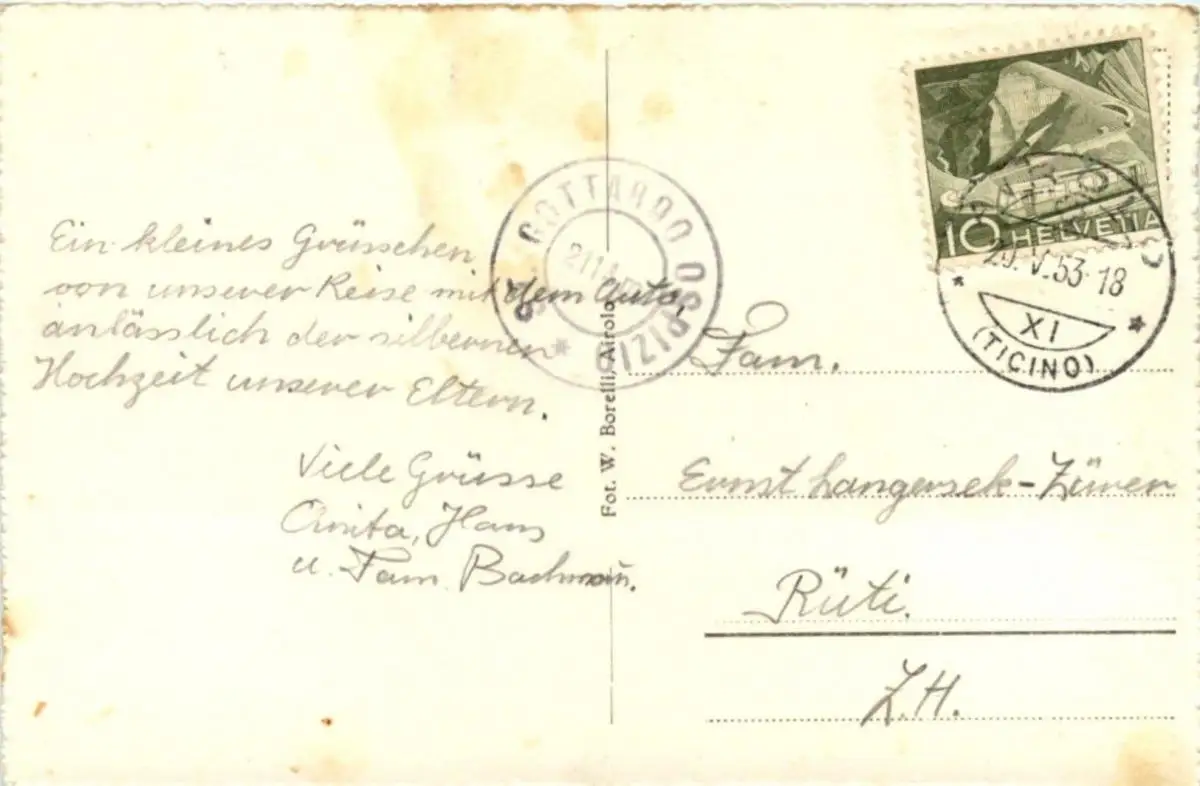 Ein kleines Grüsschen
von unserer Reise mit dem Auto,
anlässlich der silbernen
Hochzeit unserer Eltern.
Viele Grüsse
Anita, Hans
u. Fam. Bachmann.
S. GOTTARDO OSPIZIO
Fot. W. Borelli, Airolo
10 HELVETIA
V.53-18
XI
(TICINO)
Fam.
Ernst
Rüti.
Z.H.